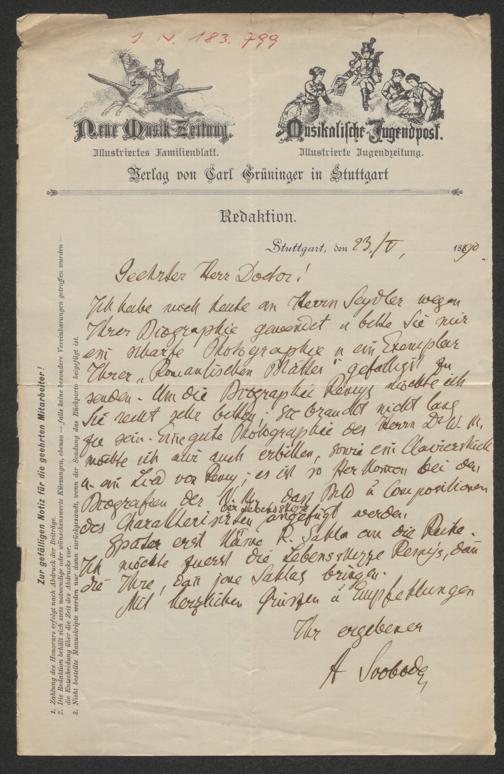 I. N. 183.799
Neue Musik-Zeitung.
Illustriertes Familienblatt.
Musikalische Jugendpost.
Illustrierte Jugendzeitung.
Verlag von Carl Grüninger in Stuttgart
Redaktion.
Stuttgart, den 23./V, 1890.
Geehrter Herr Doctor!
Ich habe noch heute an Herrn Seydler wegen
Ihrer Biographie gewendet u bitte Sie mir
eine scharfe Photographie u ein Exemplar
Ihrer „Romantischen Blätter" gefälligst zu
senden. Um die Biographie Remys möchte ich
Sie recht sehr bitten. Sie braucht nicht lang
zu sein. Eine gute Photographie des Herrn Dr W. M.
möchte ich mir auch erbitten, sowie ein Clavierstück
u ein Lied von Remy; es ist so Herkommen bei den
Biografien der N. M. Z., dass Bild u Compositionen
des Charakterisirten der Lebensskizze angefügt werden.
Später erst käme R. Sahla an die Reihe.
Ich möchte zuerst die Lebensskizze Remys, dann
die Ihre, dann jene Sahlas bringen.
Mit herzlichen Grüssen u Empfehlungen
Ihr ergebener
A Svoboda
Zur gefälligen Notiz für die geehrten Mitarbeiter!
1. Zahlung des Honorars erfolgt nach Abdruck der Beiträge.
2. Die Redaktion behält sich stets notwendige oder wünschenswerte Kürzungen, ebenso — falls keine besondere Vereinbarungen getroffen wurden —
die Entscheidung über die Zeit des Abdruckes vor.
3. Nicht bestellte Manuskripte werden nur dann zurückgesandt, wenn der Sendung das Rückporto beigefügt ist.